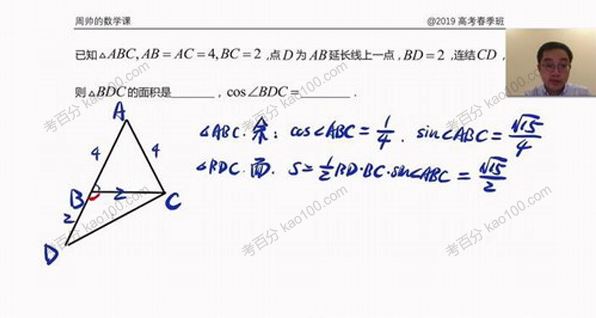 周帅的数学课
@2019 高考春季班
已知△ABC, AB = AC = 4, BC = 2 ,点 D 为 AB 延长线上一点 , BD = 2 ,连结 CD ,
则 △BDC 的面积是______ , cos∠BDC = ______ .
△ABC. 余: cos∠ABC = 1/4 . sin∠ABC = √15/4
△BDC. 面. S = 1/2 BD·BC·sin∠ABC = √15/2
A
4
4
B
2
C
2
D
考百分 kao100.com
考百分 kao100.com
考百分 kao100.com
考百分 kao100.com
考百分 kao100.com
考百分 kao100.com